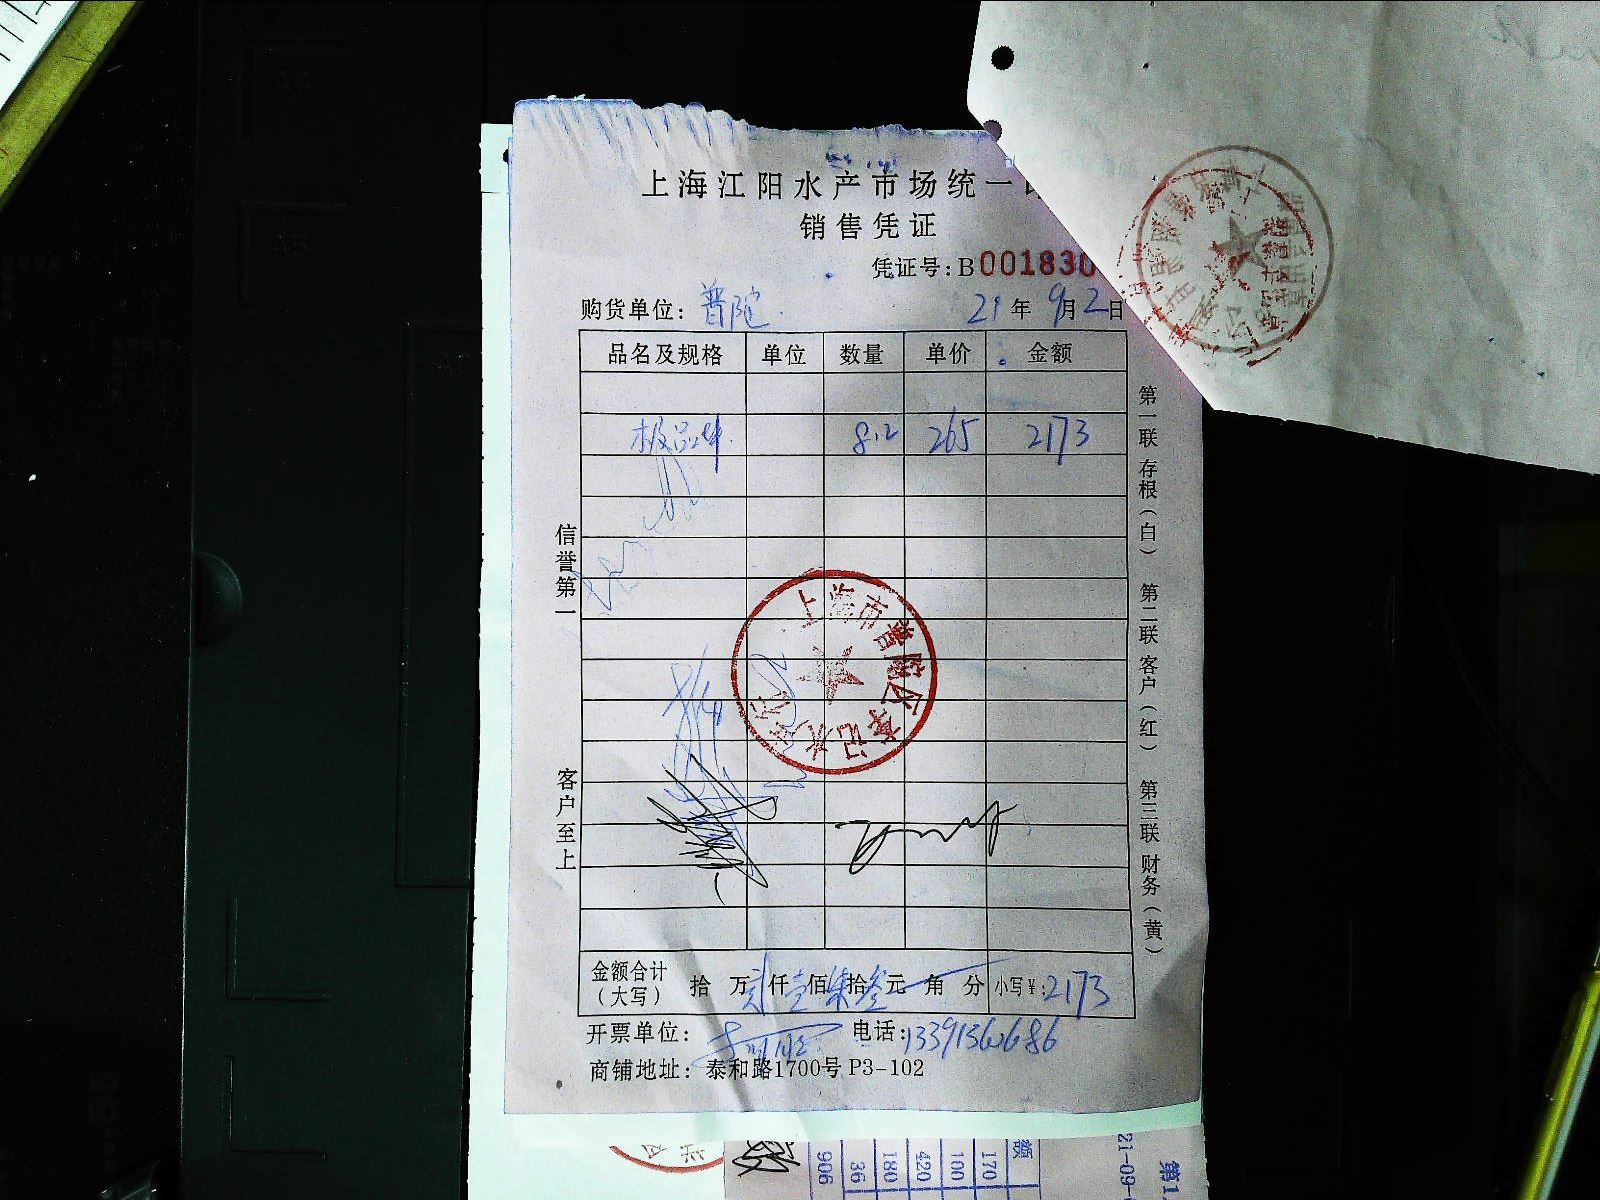 上海江阳水产市场统一
销售凭证
凭证号:B001830
购货单位: 普陀 21年9月2日
品名及规格 单位 数量 单价 金额
极品 8.2 265 2173
信誉第一
客户至上
第一联 存根(白) 第二联 客户(红) 第三联 财务(黄)
上海市普陀区 记水产行
金额合计(大写) 拾 万 贰仟壹佰柒拾叁元 角 分 小写¥:2173
开票单位: 电话:13391360686
商铺地址: 泰和路1700号 P3-102
额
170
100
420
180
36
906
21-09-
第1